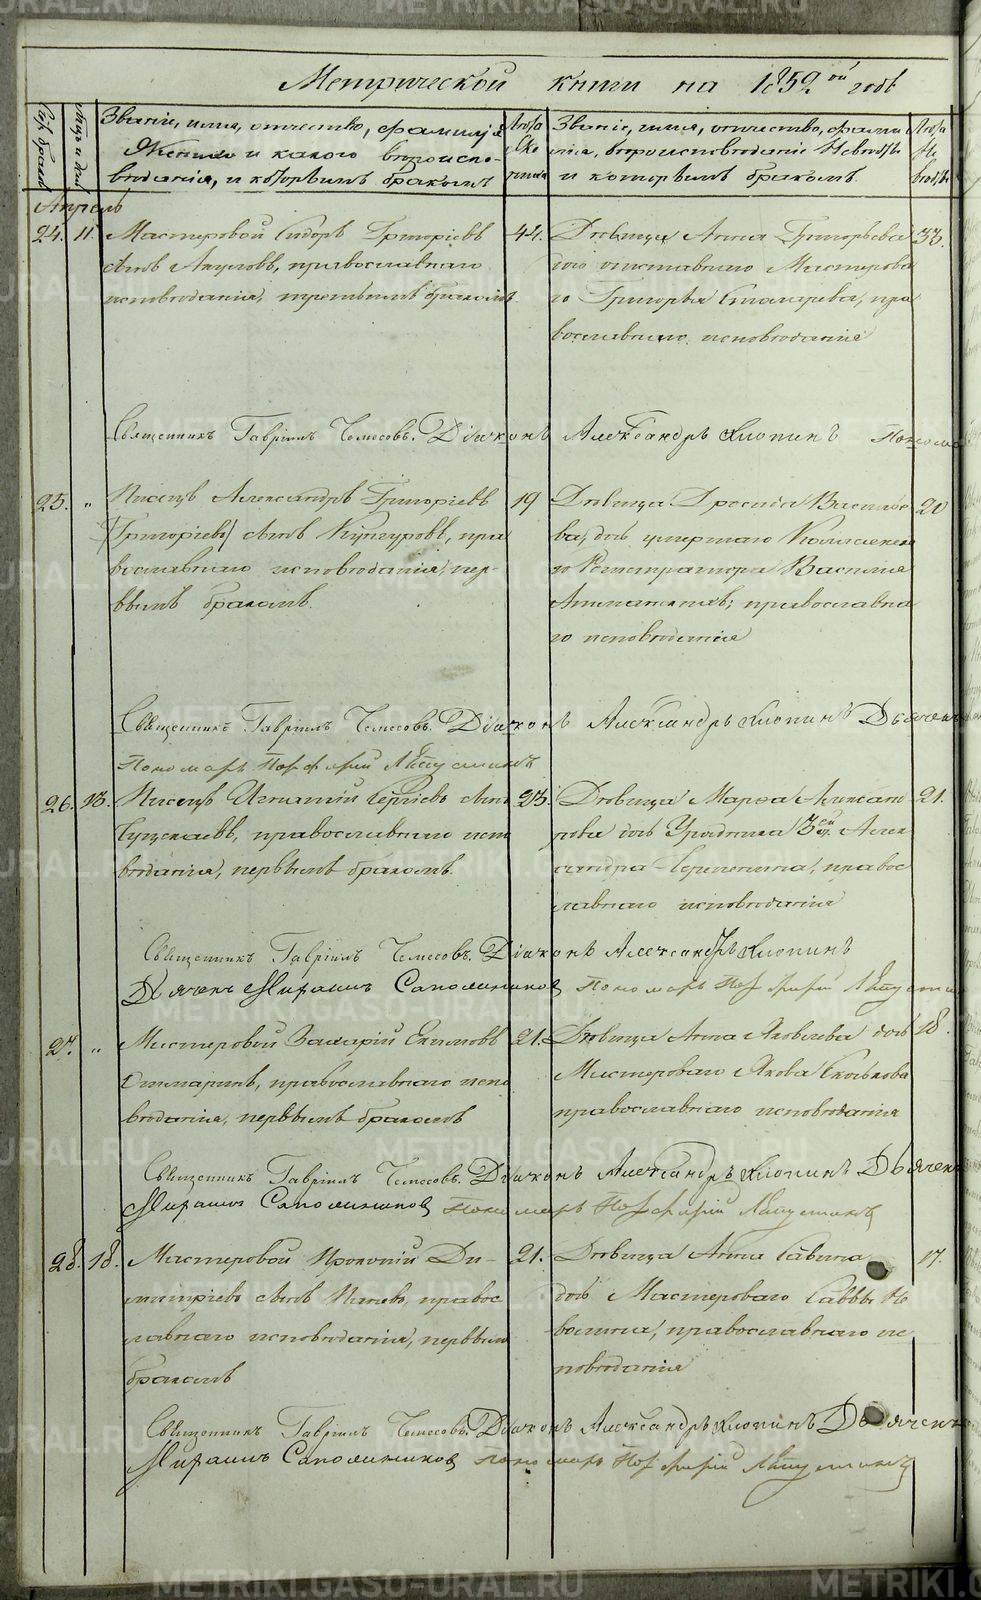 Метрической книги на 1859ой годъ
Счетъ браковъ
Мѣсяцъ и день
Званіе, имя, отчество, фамилія
Жениха и какого вѣроиспо-
вѣданія, и которымъ бракомъ
Лѣта
Же
ниха
Званіе, имя, отчество, фами
лія, вѣроисповѣданіе Невѣсты
и которымъ бракомъ
Лѣта
Не
вѣсты
Апрѣль
24. 11. Мастеровой Сидоръ Григоріевъ
сынъ Акуловъ, православнаго
исповѣданія, третьимъ бракомъ
44.
Дѣвица Анна Григорьева
дочь отставнаго Мастерова
го Григорья, пра
вославнаго исповѣданія
33.
Священникъ Гавріилъ Чемесовъ. Діаконъ Александръ Хлопинъ
25. " Писецъ Александръ Григоріевъ
/Григоріевъ/ сынъ Кунгуровъ, пра
вославнаго исповѣданія, пер-
вымъ бракомъ.
19
Дѣвица Дросида Василье
ва, дочь умершаго Коллежска
го Регистратора Василія
православна
го исповѣданія
20
Священникъ Гавріилъ Чемесовъ. Діаконъ Александръ Хлопинъ Дьячекъ
Пономарь Порфирій Лапустинъ
26. 13. Писецъ Игнатій Сергіевъ сынъ
православнаго испо
вѣданія, первымъ бракомъ.
23.
Дѣвица Марѳа Алексан
рова дочь Урядника 3ей ст. Алек
сандра Черепанина, правос
лавнаго исповѣданія
21.
Священникъ Гавріилъ Чемесовъ. Діаконъ Александръ Хлопинъ
Дьячекъ Сапожниковъ Пономарь Порфирій
27. " Мастеровой Захарій Екимовъ
православнаго испо
вѣданія, первымъ бракомъ
21.
Дѣвица Анна Яковлева дочь
Мастероваго Якова Скобкова
православнаго исповѣданія
18.
Священникъ Гавріилъ Чемесовъ. Діаконъ Александръ Хлопинъ Дьячекъ
Сапожниковъ Пономарь Порфирій Лапустинъ
28. 18. Мастеровой Прокопій Ди-
митріевъ сынъ правос
лавнаго исповѣданія, первымъ
бракомъ
21.
Дѣвица Анна Савина
дочь Мастероваго Саввы Не
волина, православнаго ис
повѣданія
17.
Священникъ Гавріилъ Чемесовъ. Діаконъ Александръ Хлопинъ Дьячекъ
Сапожниковъ Пономарь Порфирій Лапустинъ
METRIKI.GASO-URAL.RU